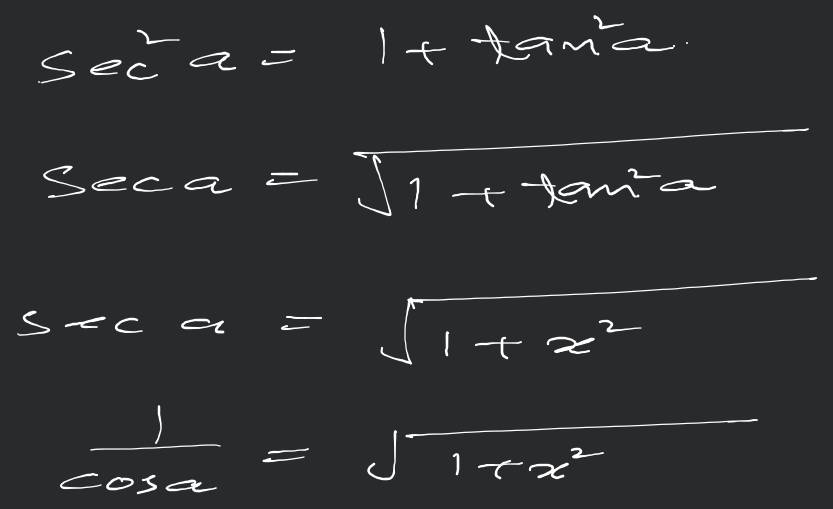 sec²a = 1 + tan²a.
sec a = √(1 + tan²a)
sec a = √(1 + x²)
1/cosa = √(1 + x²)